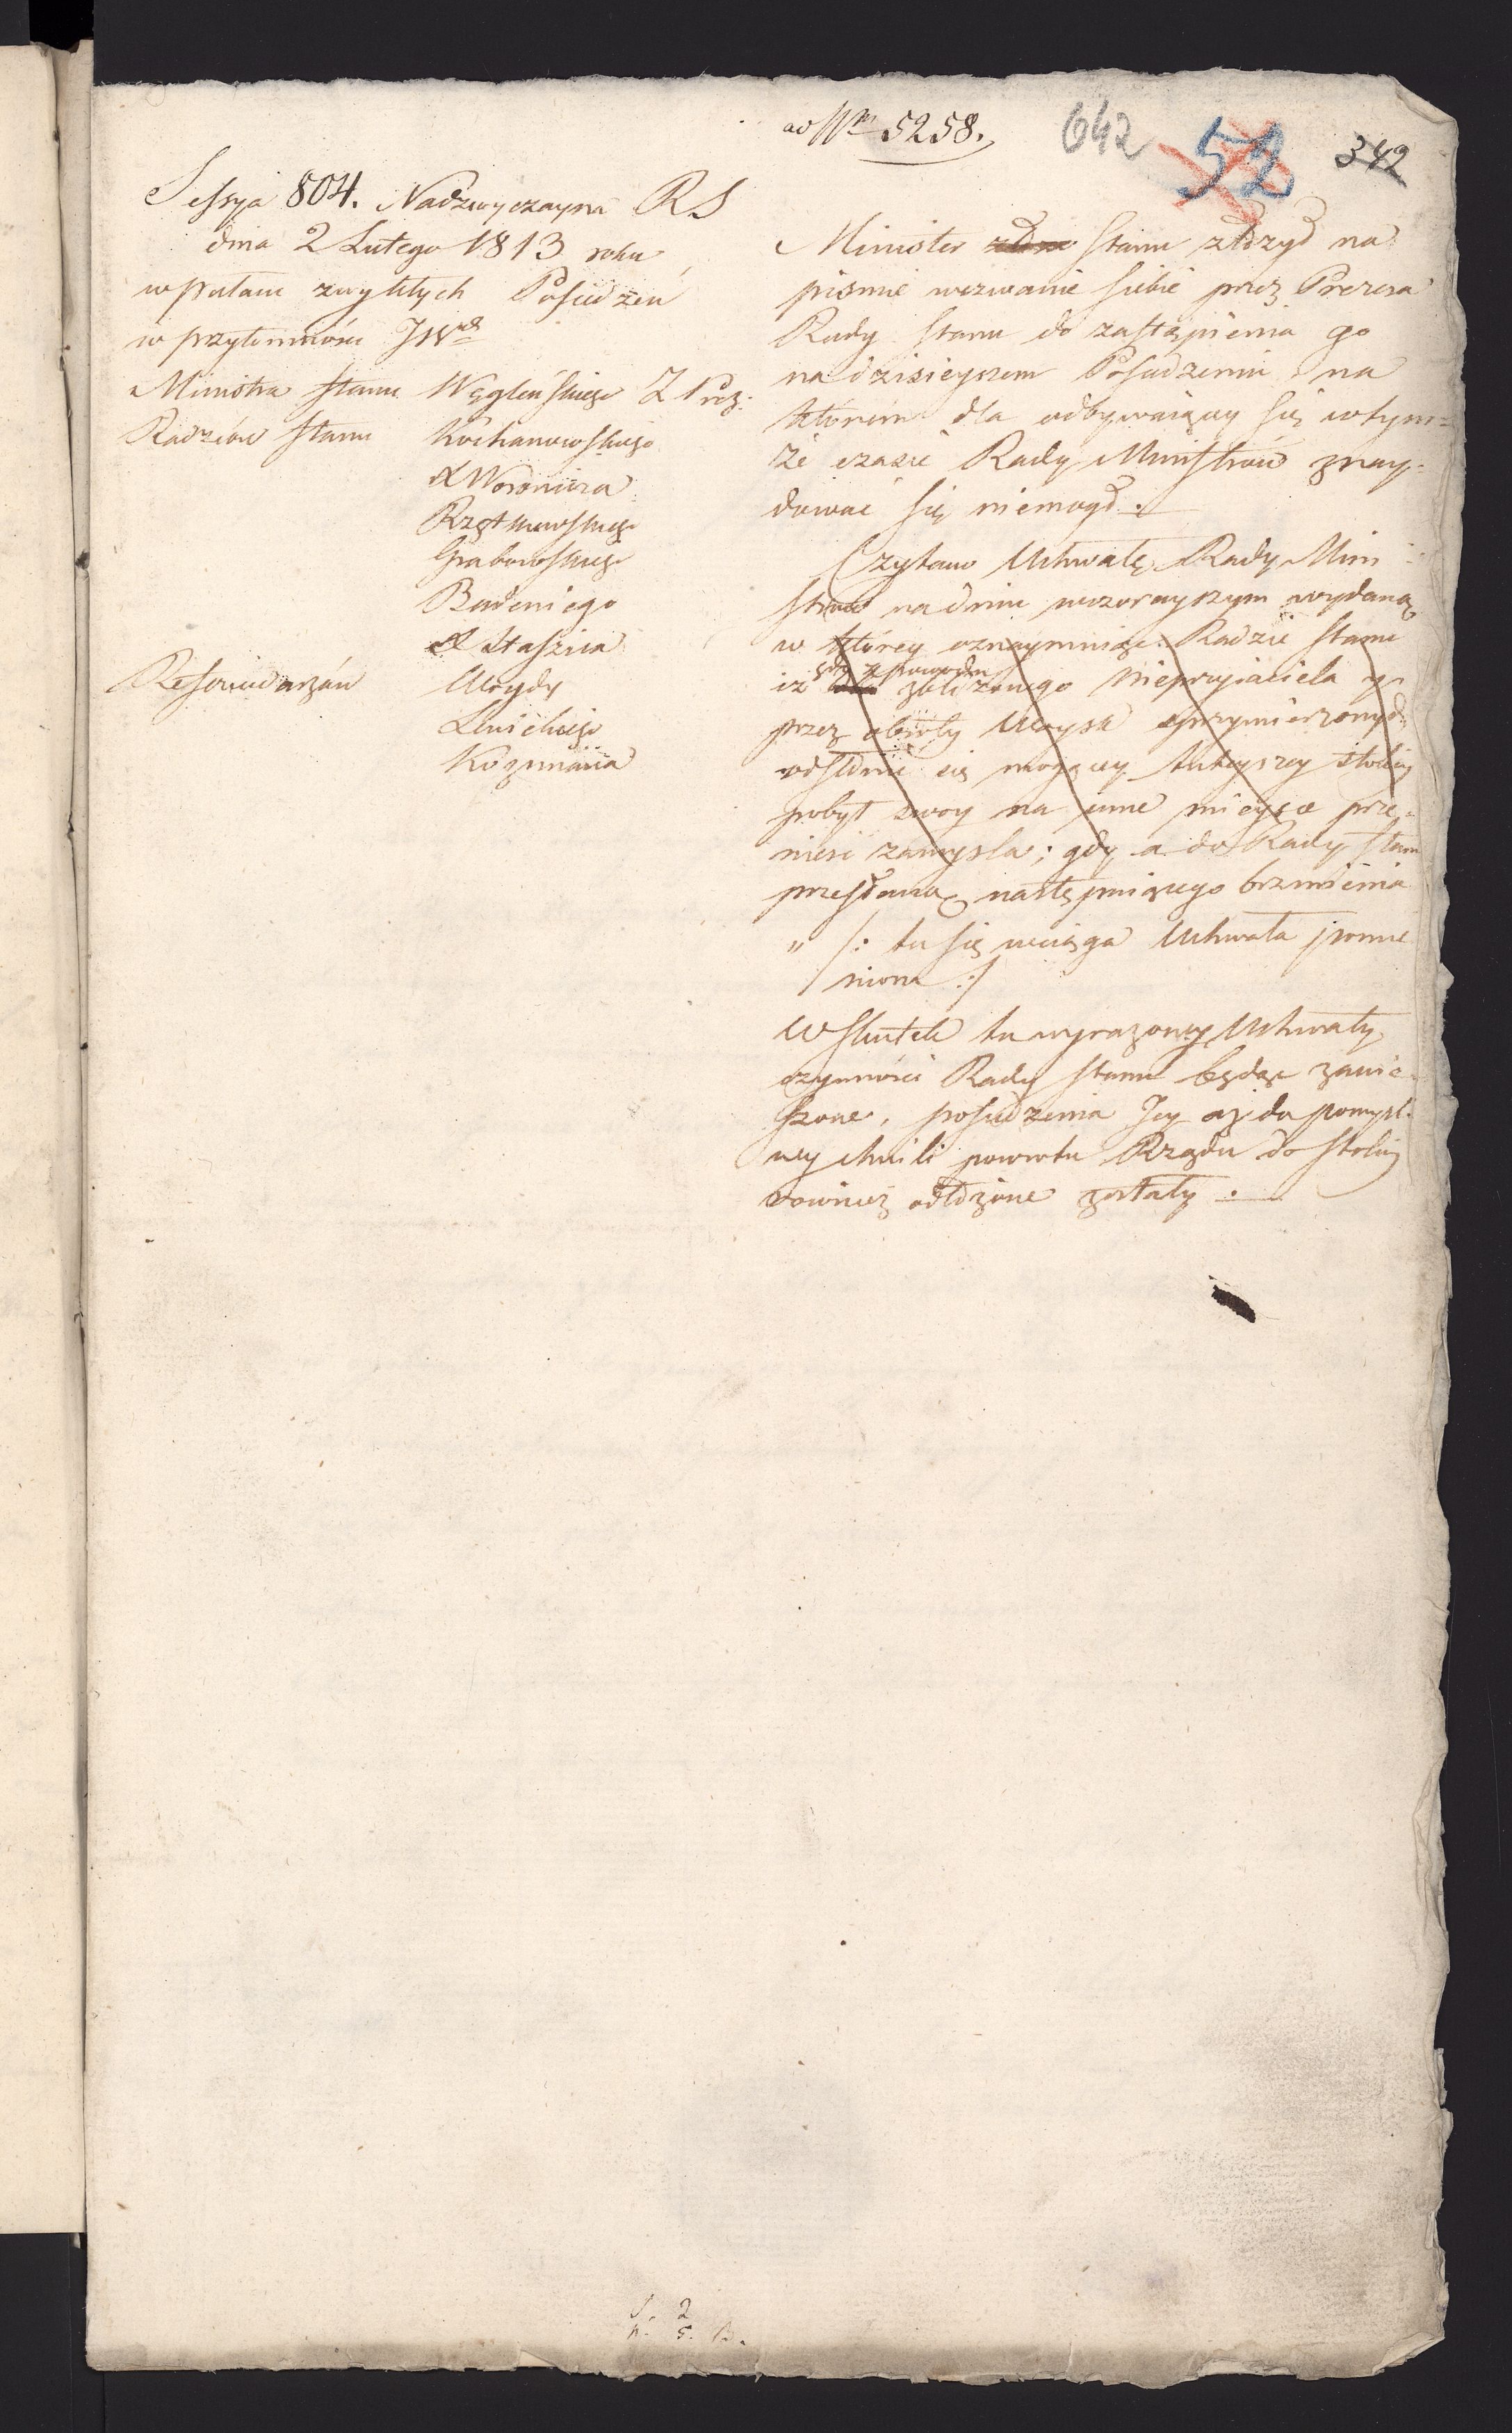 ad Nrm 5258.
642
52
342
Sessya 804. Nadzwyczayna RS
dnia 2 Lutego 1813 roku
w pałacu zwykłych Posiedzeń
w przytomności JW
Ministra Stanu Węgleńskiego Z Prez:
Radzców Stanu Kochanowskiego
X Woronicza
Rzętkowskiego
Grabowskiego
Badeniego
X Staszica
Referendarzów Woydy
Lnickiego
Koźmiana
Minister Stanu złożył na
piśmie wezwanie siebie przez Prezesa
Rady Stanu do zastąpienia go
na dzisieyszem Posiedzeniu na
którem dla odbywaiącey się w tym=
że czasie Rady Ministrów znay=
dować się niemogł.
Czytano Uchwałę Rady Mini
strów na dniu wczorayszym wydaną
w którey oznaymuiąc Radzie Stanu
iż gdy z powodu zbliżonego nieprzyiaciela y
przez obroty Woysk sprzymierzonych
odsłonić się mogącey tuteyszey stolicy
pobyt swoy na inne mieysce prze=
nieść zamyśla; gdy a do Rady Stanu
przesłaną następuiącego brzmienia
" /: tu się wciąga Uchwała pomie
niona :/
W skutek tu wyrażoney Uchwały
czynności Rady Stanu będąc zawie=
szone, posiedzenia Jey aż do pomyśl=
ney chwili powrotu Rządu do Stolicy
rownież odłożone zostały.